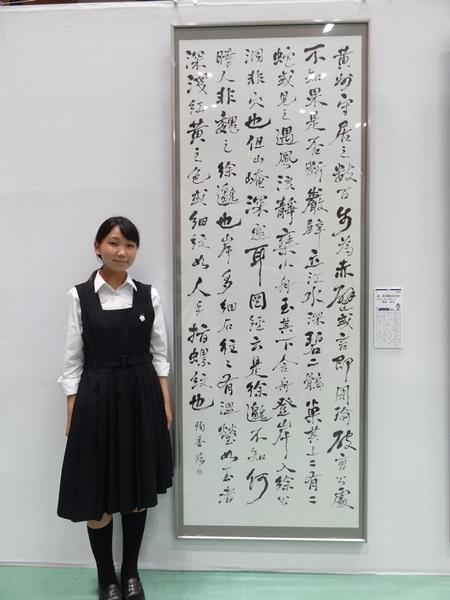 黄州守居之数百歩為赤壁或言即周瑜破曹公處
不知果是否断巖壁立江水深碧二鶻巢其上有二
蛇或見之遇風浪静乗小舟至其下舍舟登岸入徐公
洞非穴也但山崦深邃耳圖經云是徐邈不知何
時人非魏之徐邈也岸多細石往々有温瑩如玉者
深淺紅黄之色或細紋如人手指螺紋也